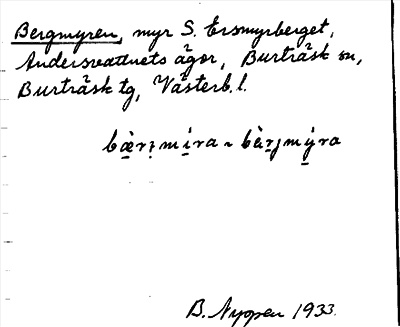 Bergmyren, myr S. Ersmyrberget,
Andersvattnets ägor, Burträsk sn,
Burträsk tg, Västerb. l.
bæ̀rjmíra ~ bæ̀rjmýra
B. Nygren 1933.